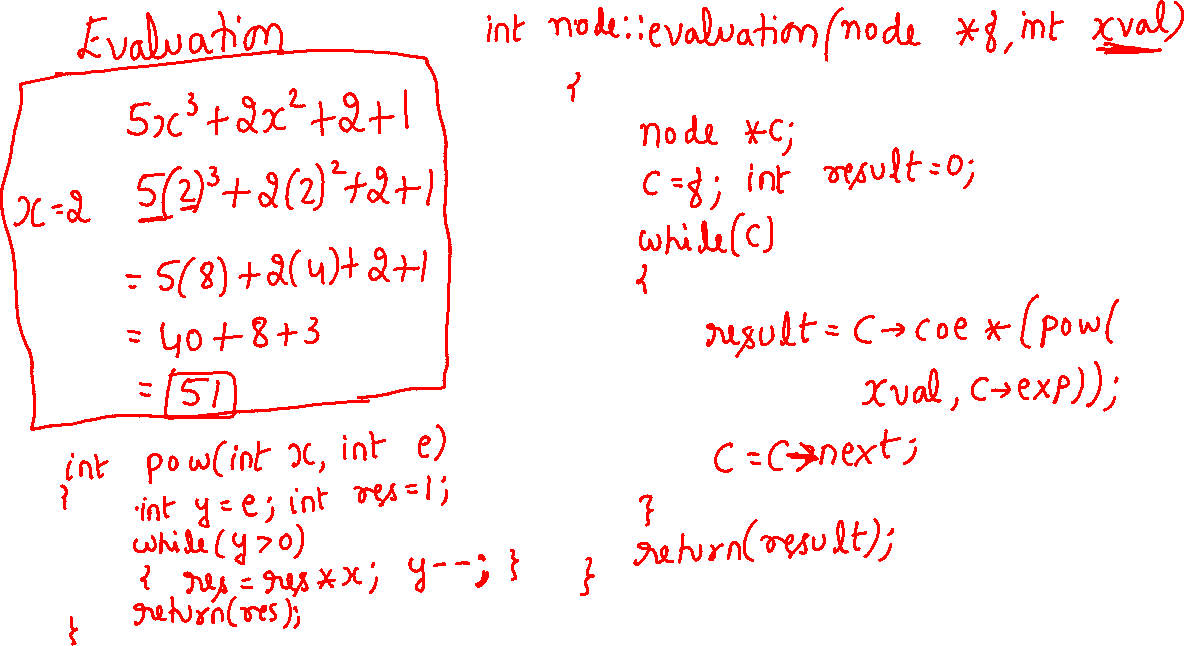 Evaluation
5x³+2x²+2+1
x=2 5(2)³+2(2)²+2+1
= 5(8)+2(4)+2+1
= 40+8+3
= 51
int pow(int x, int e)
{
int y=e; int res=1;
while(y>0)
{ res=res*x; y--; }
return(res);
}
int node::evaluation(node *f, int xval)
{
node *c;
c=f; int result=0;
while(c)
{
result = c→coe * (pow(
xval, c→exp));
c=c→next;
}
return(result);
}